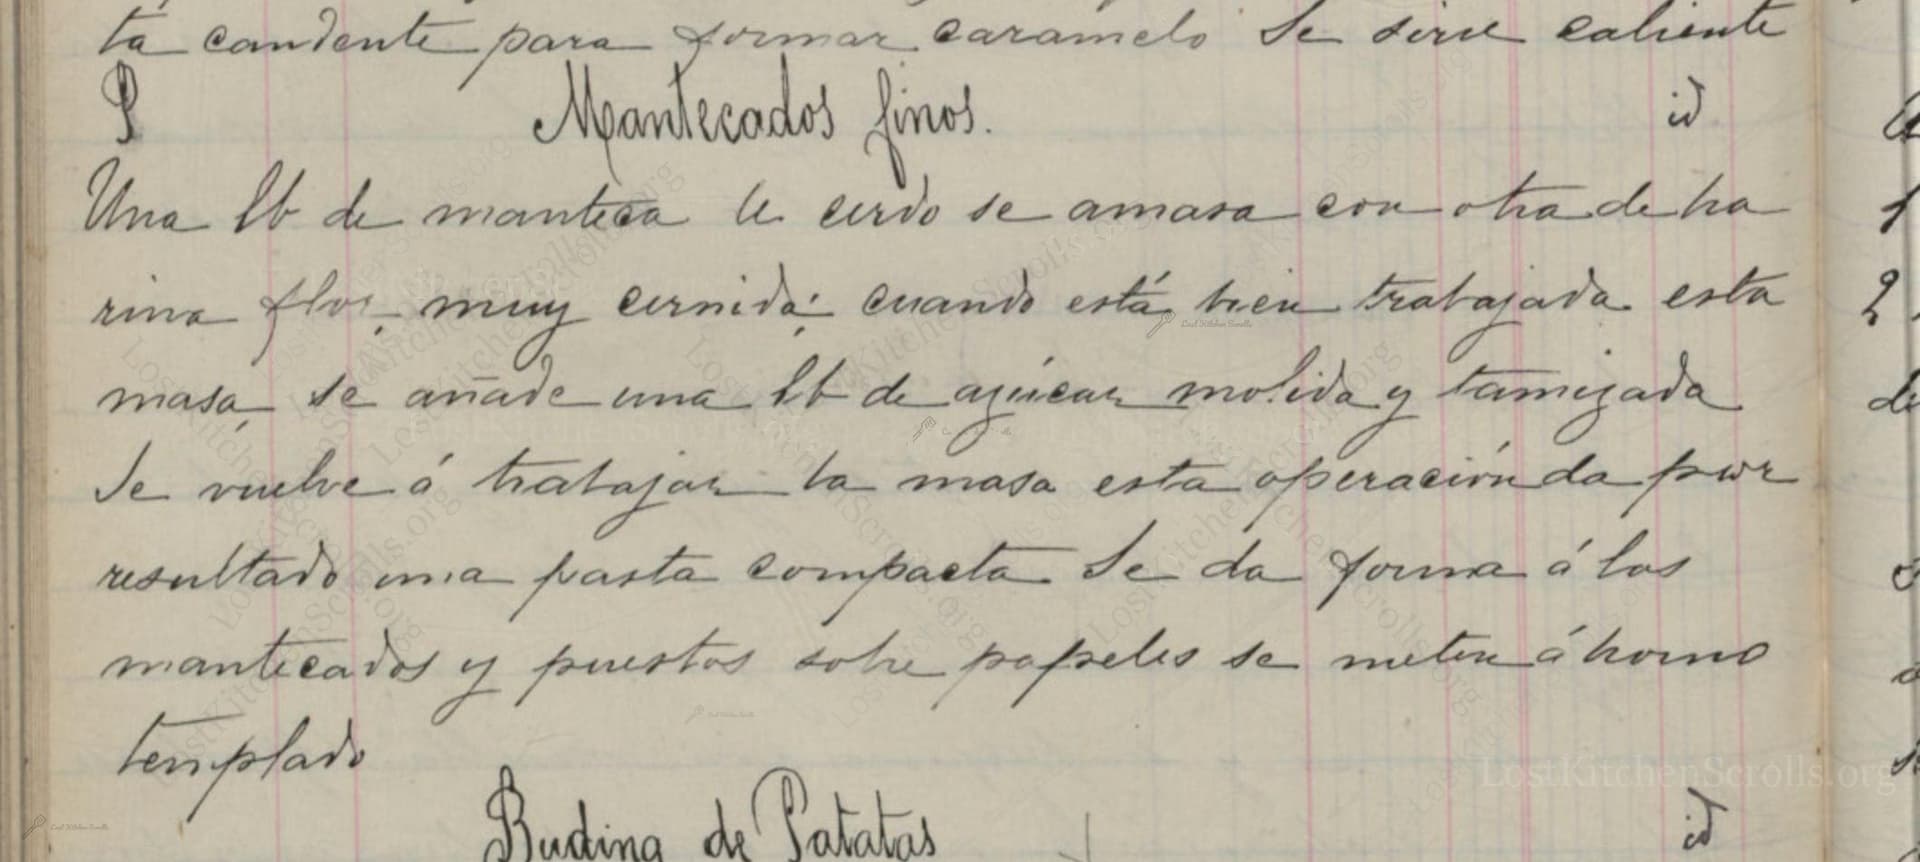 ta candente para formar caramelo Se sirve caliente
P Mantecados finos. id
Una lb de manteca de cerdo se amasa con otra de ha
rina flor, muy cernida; cuando está bien trabajada esta
masa, se añade una lb de azúcar molida y tamizada
Se vuelve á trabajar la masa esta operación da por
resultado una pasta compacta Se da forma á los
mantecados y puestos sobre papeles se meten á horno
templado
Buding de Patatas id
LostKitchenScrolls.org